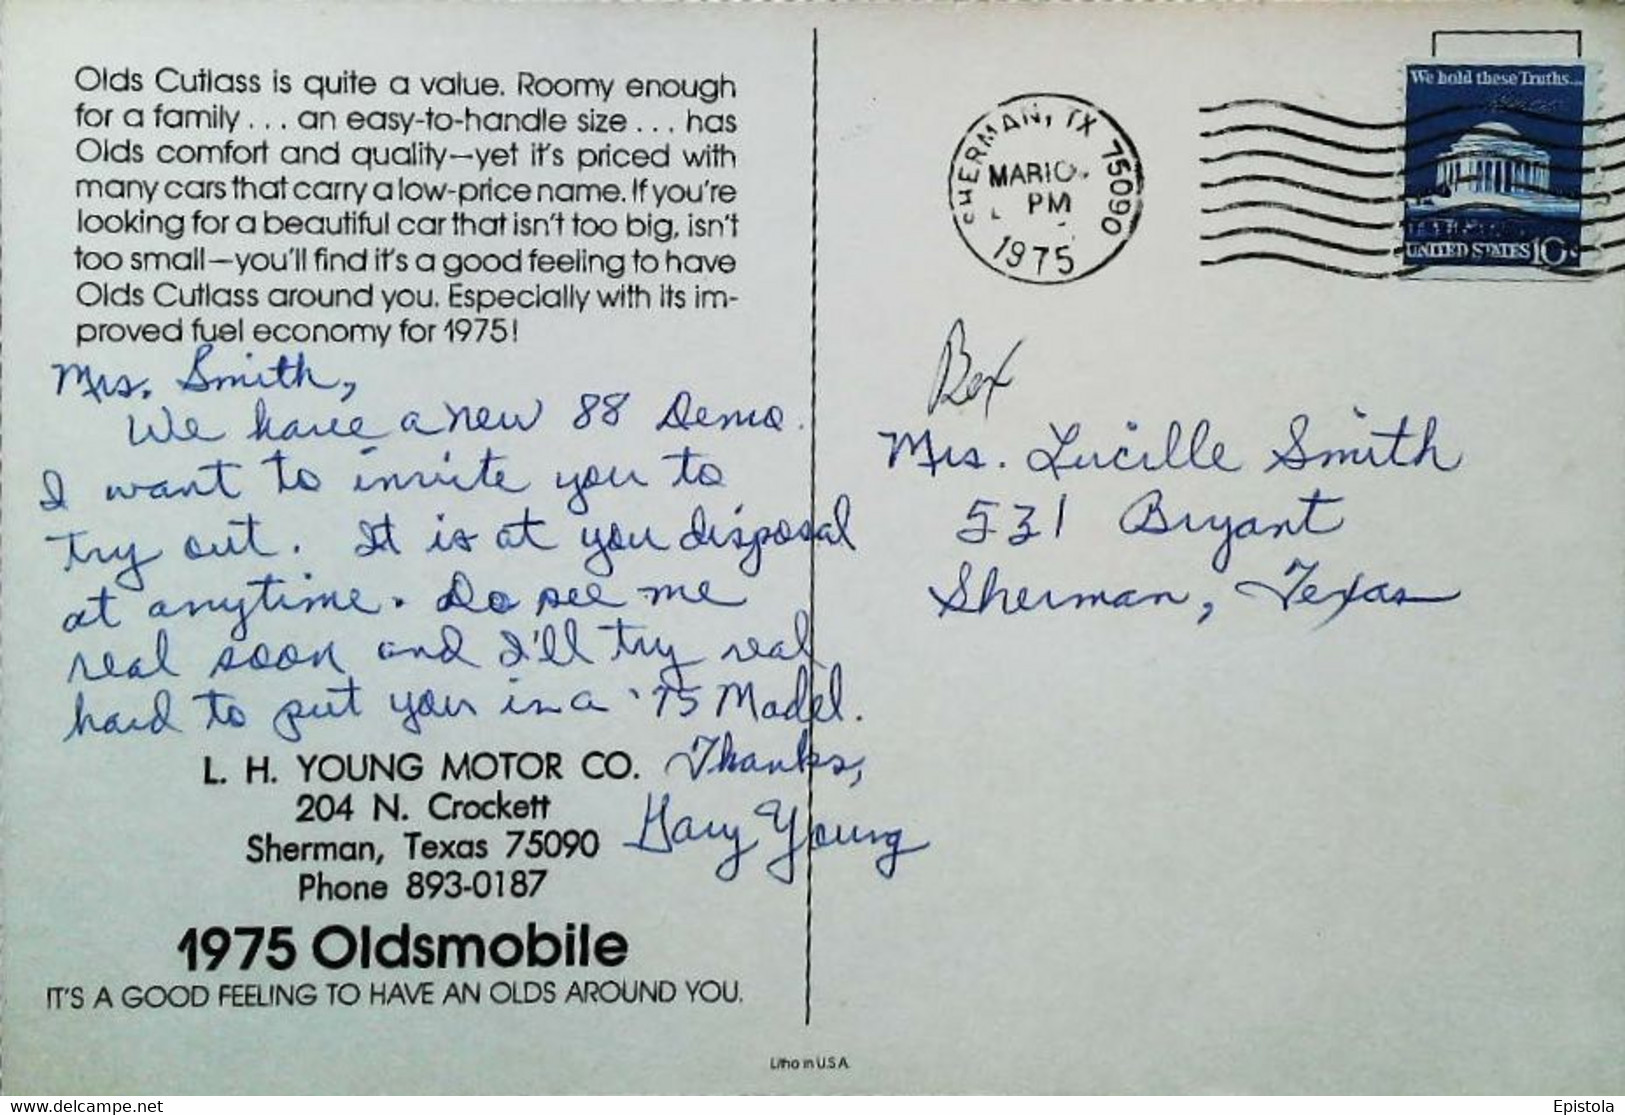 Olds Cutlass is quite a value. Roomy enough
for a family . . . an easy-to-handle size . . . has
Olds comfort and quality—yet it's priced with
many cars that carry a low-price name. If you're
looking for a beautiful car that isn't too big, isn't
too small—you'll find it's a good feeling to have
Olds Cutlass around you. Especially with its im-
proved fuel economy for 1975!
Mrs. Smith,
We have a new 88 Demo.
I want to invite you to
try out. It is at you disposal
at anytime. Do see me
real soon and I'll try real
hard to put you in a '75 Model.
Thanks,
Gary Young
L. H. YOUNG MOTOR CO.
204 N. Crockett
Sherman, Texas 75090
Phone 893-0187
1975 Oldsmobile
IT'S A GOOD FEELING TO HAVE AN OLDS AROUND YOU.
SHERMAN, TX 75090
MAR 10
PM
1975
We hold these Truths...
UNITED STATES 10c
Mrs. Lucille Smith
531 Bryant
Sherman, Texas
Litho in U.S.A.
delcampe.net
Epistola